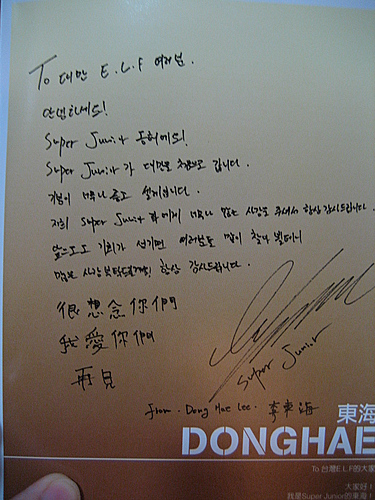 To 대만 E.L.F 여러분.
안녕하세요!
Super Junior 동해에요!
Super Junior 가 대만을 처음으로 갑니다.
기분이 너무나 좋고 설레입니다.
저희 Super Junior 에게 너무나 많은 사랑을 주셔서 항상 감사드립니다.
앞으로도 기회가 생기면 여러분들 많이 찾아 뵐테니
많은 사랑 부탁드릴께요! 항상 감사드립니다.
很想念你們
我愛你們
再見
Super Junior
from. Dong Hae Lee. 李東海
東海
DONGHAE
To 台灣E.L.F的大家
大家好!
我是Super Junior的東海